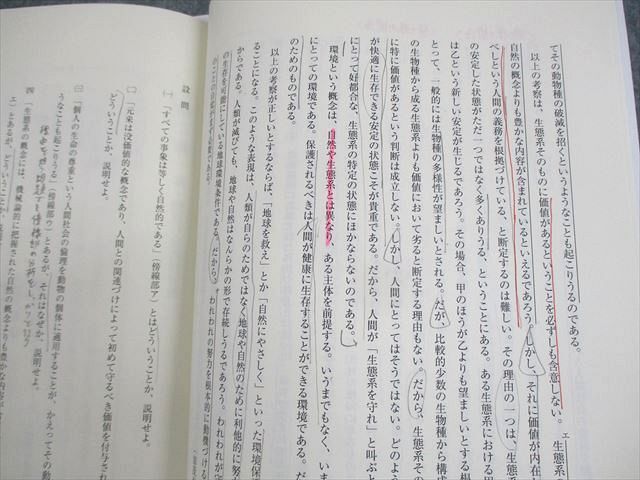 てその動物種の破滅を招くというようなことも起こりうるのである。
以上の考察は、生態系そのものに価値があるということを必ずしも含意しない。
自然の概念よりも豊かな内容が含まれているといえるであろう。しかし、それに価値が内在し
べしという人間の義務を根拠づけている、と断定するのは難しい。その理由の一つは、生態系
の安定した状態がただ一つではなく多くありうる、ということにある。ある生態系における甲
は乙という新しい安定が生じるであろう。その場合、甲のほうが乙よりも望ましいとする
とって、一般的には生物種の多様性が望ましいとされる。だが、比較的少数の生物種から構成
の生物種から成る生態系よりも価値において劣ると断定する理由もない。だから、生態系その
に特に価値があるという判断は成立しない。しかし、人間にとってはそうではない。どのよう
が快適に生存できる安定の状態こそが貴重である。だから、人間が「生態系を守れ」と叫ぶと
にとって好都合な、生態系の特定の状態にほかならないのである。
環境という概念は、自然や生態系とは異なり、ある主体を前提する。いうまでもなく、いま
にとっての環境である。保護されるべきは人間が健康に生存することができる環境である。だ
のためのものである。
以上の考察が正しいとするならば、「地球を救え」とか「自然にやさしく」といった環境保
ることになる。このような表現は、人類が自らのためではなく地球や自然のために利他的に努
からである。人類が滅びても、地球や自然はなんらかの形で存続しうるであろう。われわれが守
の生存を可能にしている地球環境条件である。だから、われわれの努力を根本的に動機づける
設問
㈠ 「すべての事象は等しく自然的である」（傍線部ア）とはどういうことか、説明せよ。
㈡ 「元来は没価値的な概念であり、人間との関連づけによって初めて守るべき価値を付与され
どういうことか、説明せよ。
㈢ 「個人の生命の尊重という人間社会の倫理を動物の個体に適用することが、かえってその動
うなことも起こりうる」（傍線部ウ）とあるが、それはなぜか、説明せよ。
㈣ 「生態系の概念には、機械論的に把握された自然の概念よりも豊かな内容が
エ）とあるが、どういうことか